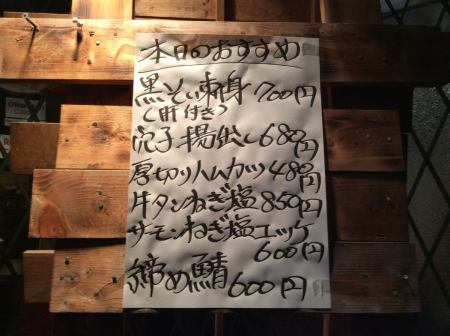 本日のおすすめ
黒そい刺身 700円
(肝付き)
穴子揚出し 680円
厚切りハムカツ 480円
牛タンねぎ塩 850円
サーモンねぎ塩ユッケ
600円
締め鯖 600円